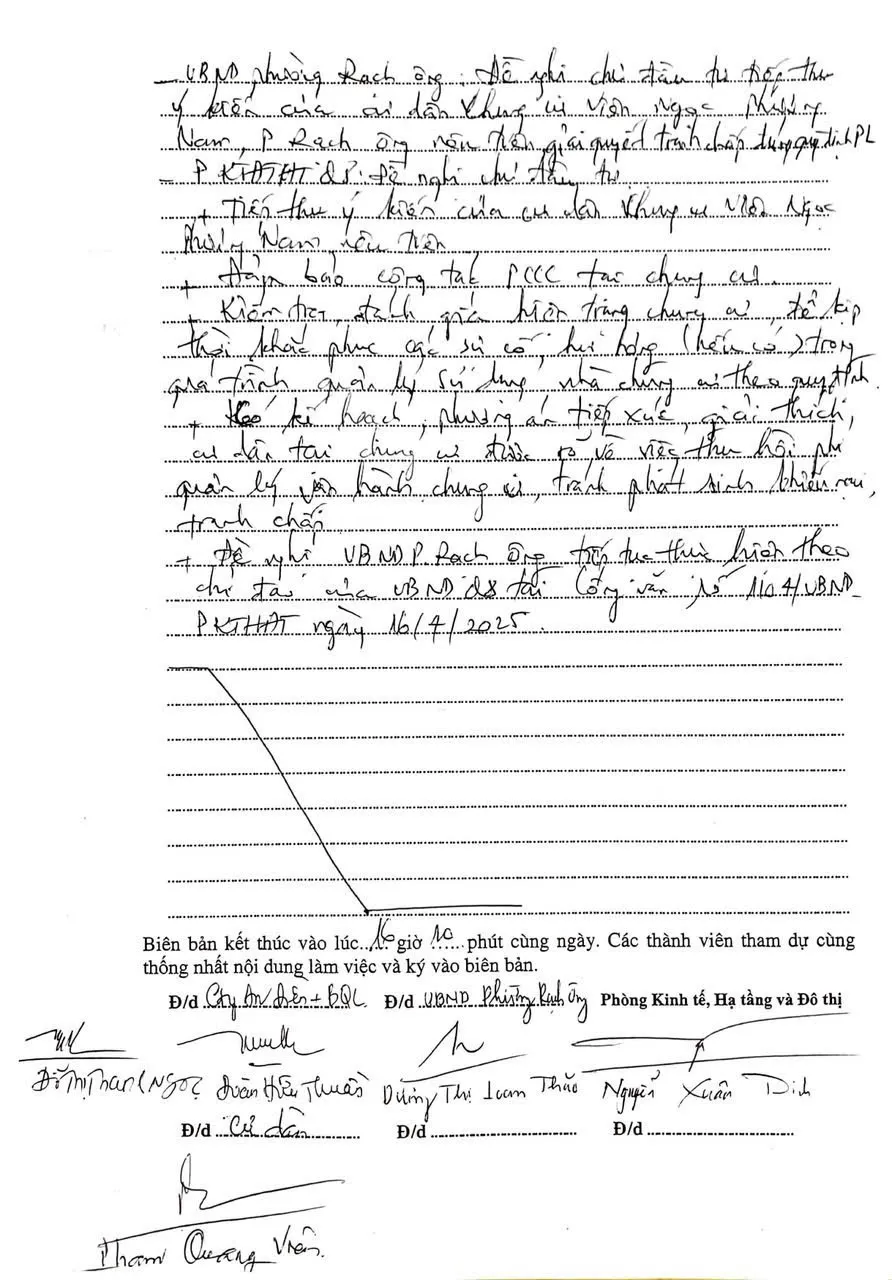 - UBND phường Rạch Ông: Đề nghị chủ đầu tư tiếp thu
ý kiến của cư dân chung cư Viên Ngọc Phương
Nam, P Rạch Ông nêu trên, giải quyết tranh chấp đúng quy định PL
- P KTHTĐT &P: Đề nghị chủ đầu tư
+ Tiếp thu ý kiến của cư dân chung cư Viên Ngọc
Phương Nam nêu trên
+ Đảm bảo công tác PCCC tại chung cư.
+ Kiểm tra, đánh giá hiện trạng chung cư, để kịp
thời khắc phục các sự cố, hư hỏng (nếu có) trong
quá trình quản lý sử dụng nhà chung cư theo quy định.
+ Có kế hoạch, phương án tiếp xúc, giải thích,
cư dân tại chung cư được rõ về việc thu hồi phí
quản lý vận hành chung cư, tránh phát sinh khiếu nại,
tranh chấp
+ Đề nghị UBND P. Rạch Ông tiếp tục thực hiện theo
chỉ đạo của UBND Q8 tại Công văn số 1104/UBND-
PKTHTĐT ngày 16/4/2025.
Biên bản kết thúc vào lúc..16 giờ 10.... phút cùng ngày. Các thành viên tham dự cùng
thống nhất nội dung làm việc và ký vào biên bản.
Đ/d Cty An Điền + BQL Đ/d UBND Phường Rạch Ông Phòng Kinh tế, Hạ tầng và Đô thị
Đỗ Thị Thanh Ngọc Đoàn Hiếu Thuần Dương Thị Loan Thảo Nguyễn Xuân Dinh
Đ/d Cư dân Đ/d Đ/d
Phạm Quang Viên.